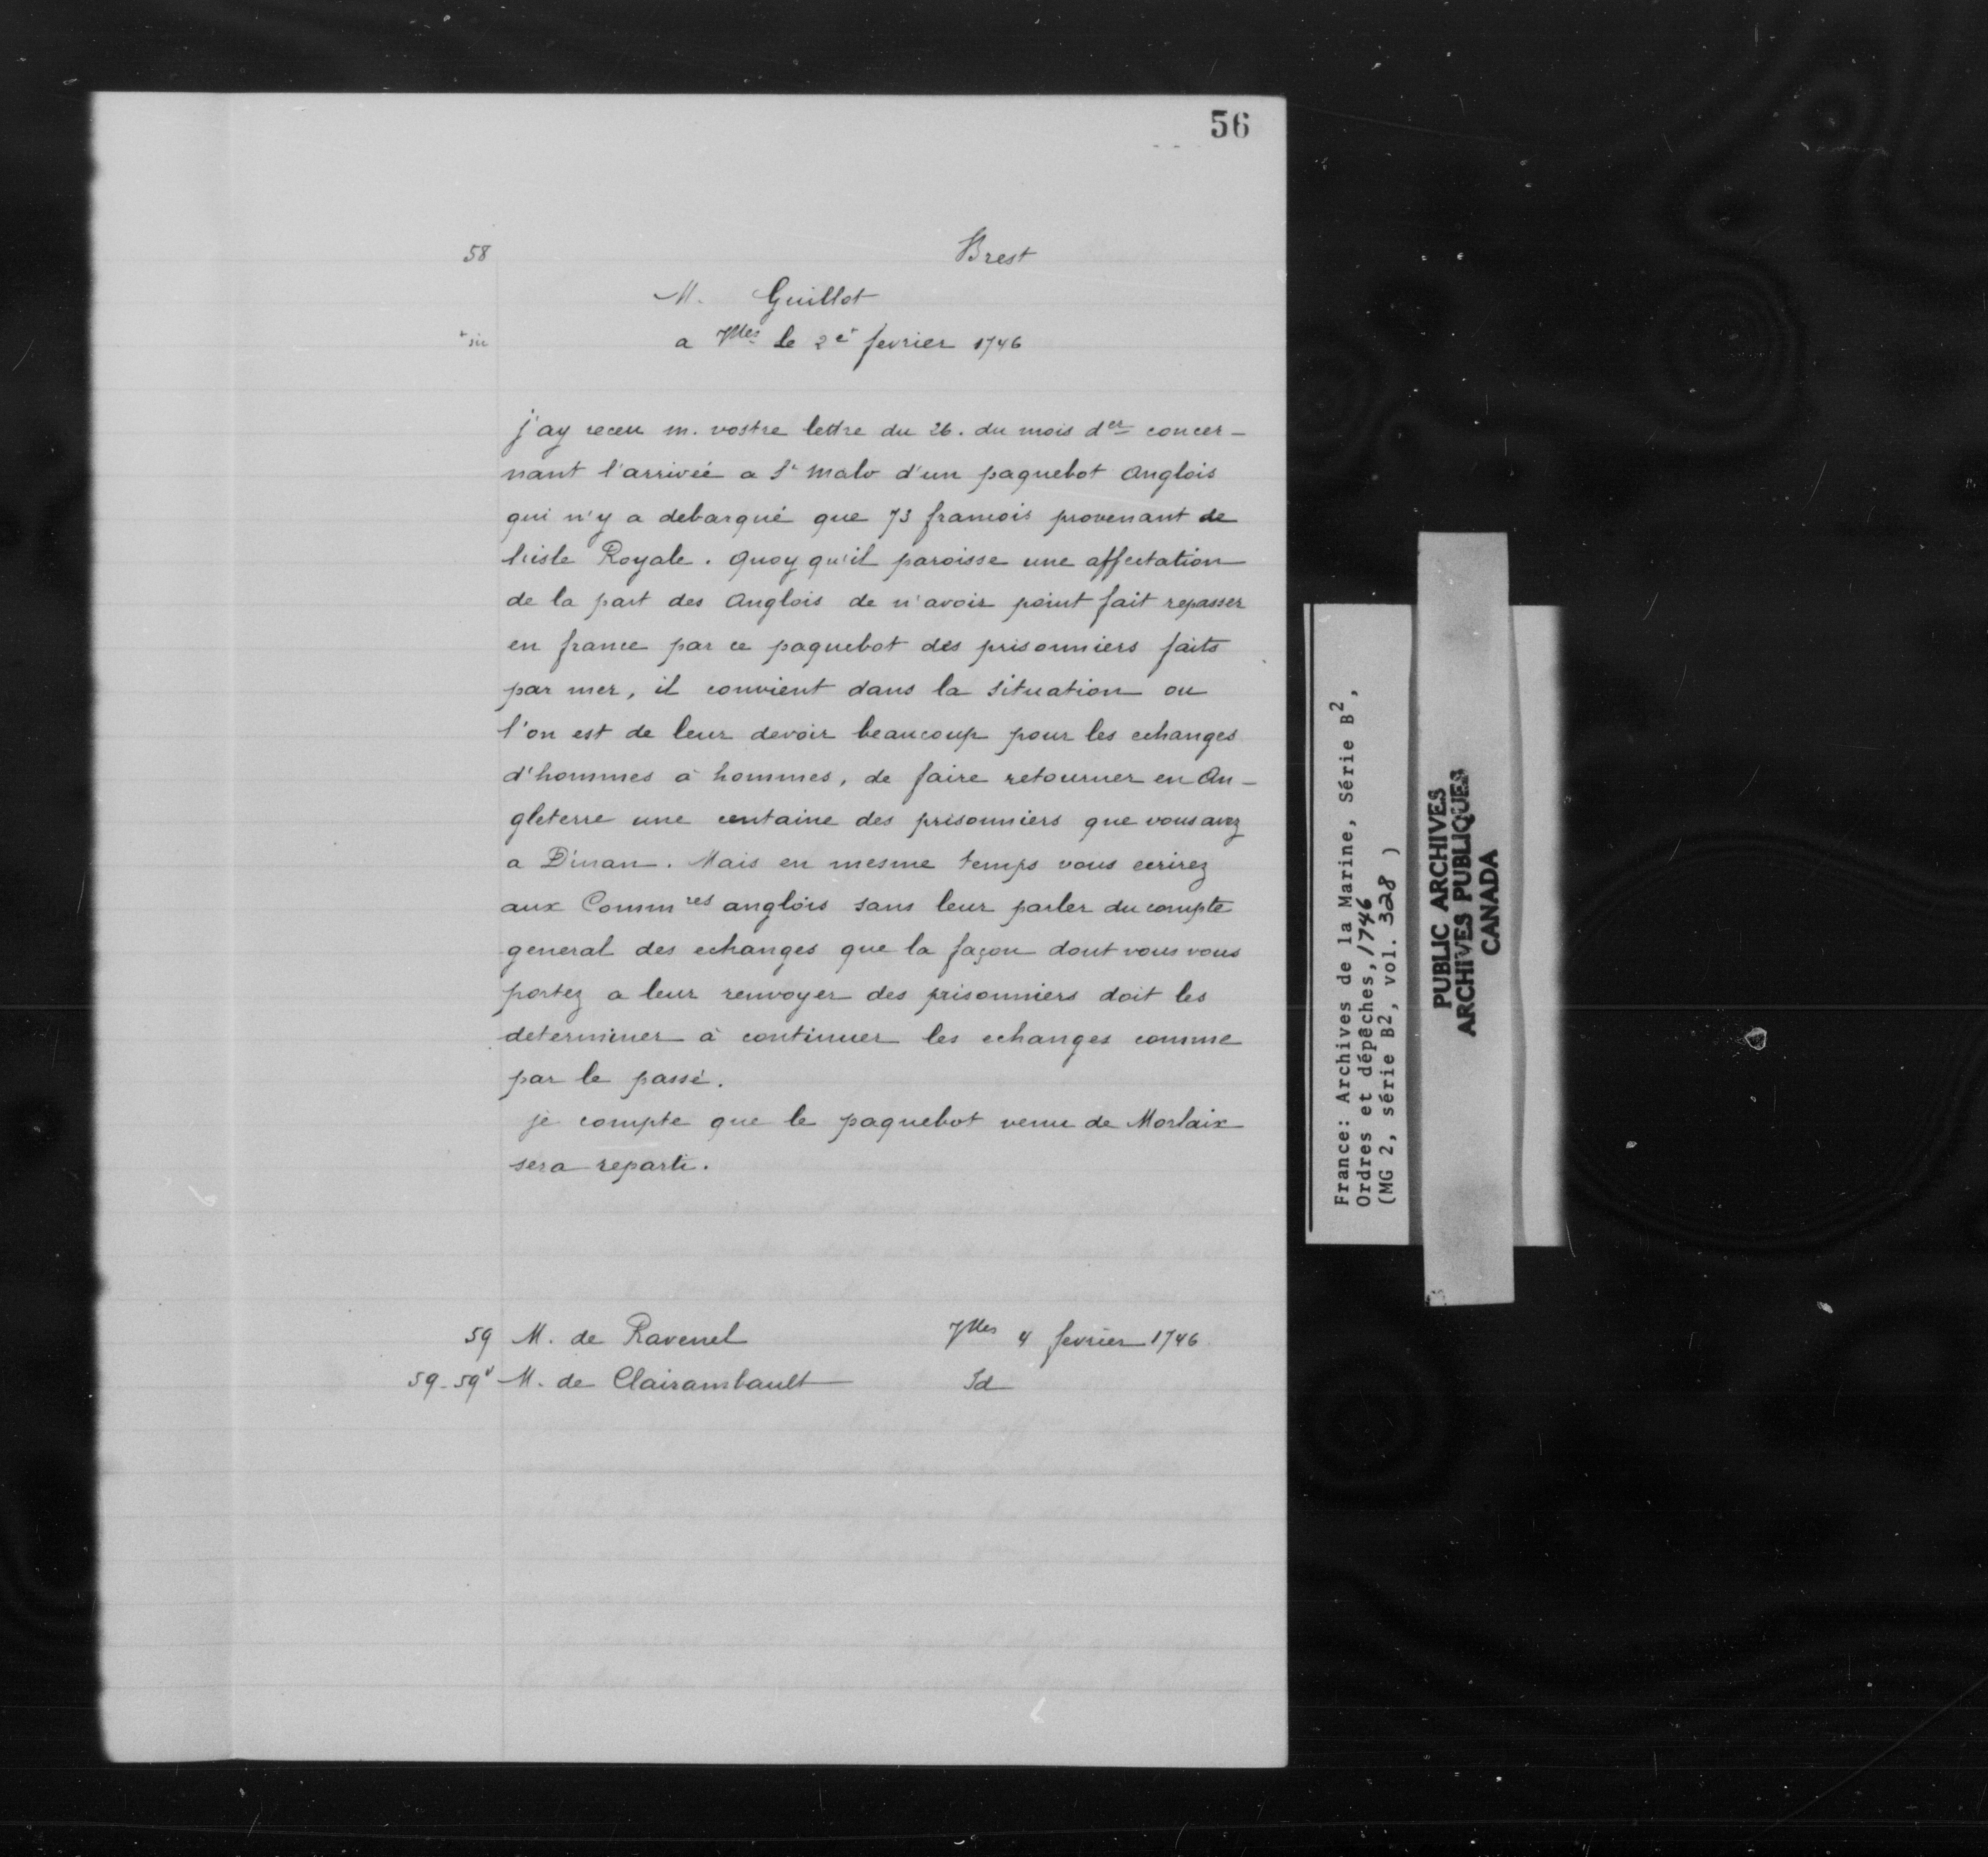 56
58 Brest
M. Guillot
+ sic a Vlles le 2e fevrier 1746
j'ay receu m. vostre lettre du 26. du mois der concer-
nant l'arrivée a St Malo d'un paquebot Anglois
qui n'y a debarqué que 73 francois provenant de
l'isle Royale. Quoy qu'il paroisse une affectation
de la part des Anglois de n'avoir point fait repasser
en france par ce paquebot des prisonniers faits
par mer, il convient dans la situation ou
l'on est de leur devoir beaucoup pour les echanges
d'hommes à hommes, de faire retourner en An-
gleterre une centaine des prisonniers que vous avez
a Dinan. Mais en mesme temps vous ecrirez
aux Commres anglois sans leur parler du compte
general des echanges que la façon dont vous vous
portez a leur renvoyer des prisonniers doit les
determiner à continuer les echanges comme
par le passé.
je compte que le paquebot venu de Morlaix
sera reparti.
59 M. de Ravenel Vlles 4 fevrier 1746
59-59v M. de Clairambault Id
France: Archives de la Marine, Série B2,
Ordres et dépêches, 1746
(MG 2, série B2, vol. 328 )
PUBLIC ARCHIVES
ARCHIVES PUBLIQUES
CANADA